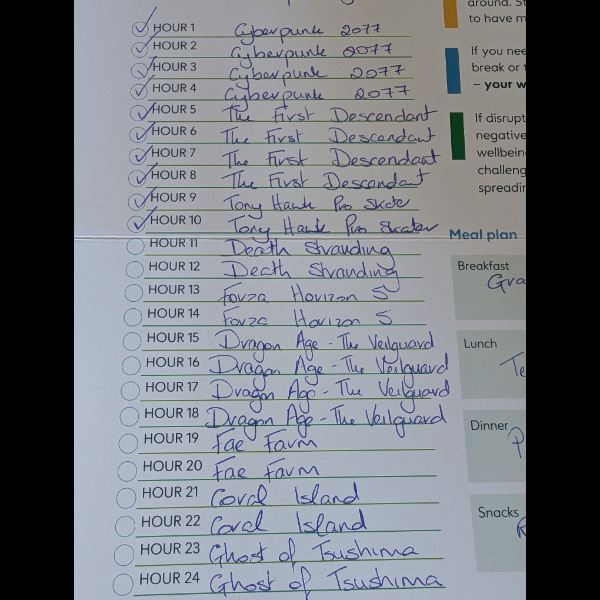 HOUR 1 Cyberpunk 2077
HOUR 2 Cyberpunk 2077
HOUR 3 Cyberpunk 2077
HOUR 4 Cyberpunk 2077
HOUR 5 The First Descendant
HOUR 6 The First Descendant
HOUR 7 The First Descendant
HOUR 8 The First Descendant
HOUR 9 Tony Hawk Pro Skater
HOUR 10 Tony Hawk Pro Skater
HOUR 11 Death Stranding
HOUR 12 Death Stranding
HOUR 13 Forza Horizon 5
HOUR 14 Forza Horizon 5
HOUR 15 Dragon Age - The Veilguard
HOUR 16 Dragon Age - The Veilguard
HOUR 17 Dragon Age - The Veilguard
HOUR 18 Dragon Age - The Veilguard
HOUR 19 Fae Farm
HOUR 20 Fae Farm
HOUR 21 Coral Island
HOUR 22 Coral Island
HOUR 23 Ghost of Tsushima
HOUR 24 Ghost of Tsushima
around. St
to have m
If you nee
break or
– your w
If disrupt
negative
wellbein
challeng
spreadin
Meal plan
Breakfast
Gra
Lunch
Te
Dinner
Snacks